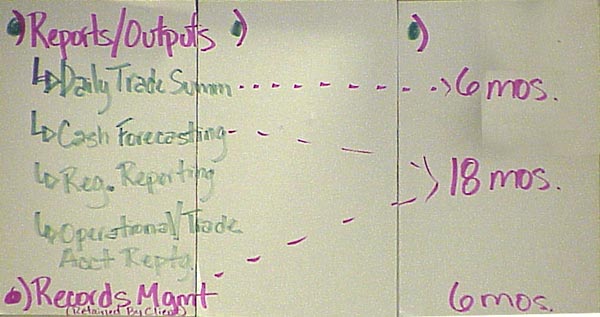 Reports/Outputs
Daily Trade Summ 6 mos.
Cash Forecasting
Reg. Reporting 18 mos.
Operational/Trade
Acct Reptg.
Records Mgmt 6 mos.
(Retained By Client)